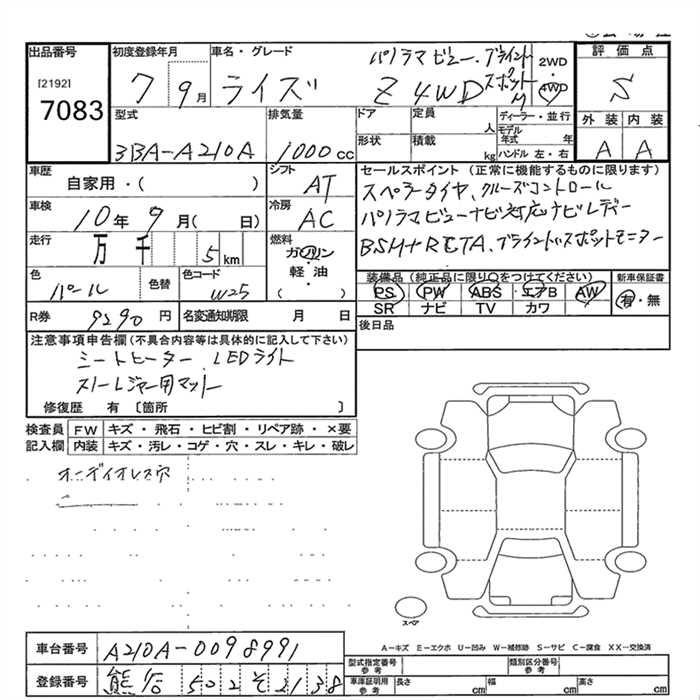 出品番号
[2192]
7083
初度登録年月
7 9月
車名・グレード
ライズ Z 4WD
パノラマビュー、ブラインド
スポットM
2WD
4WD
評価点
S
外装 内装
A A
型式
3BA-A210A
排気量
1000cc
ドア
定員
人
ディーラー・並行
モデル
年式 年
形状
積載
kg
ハンドル 左・右
車歴
自家用・( )
シフト
AT
セールスポイント (正常に機能するものに限ります)
スペアータイヤ、クルーズコントロール
パノラマビューナビ対応ナビレディー
BSM+RCTA、ブラインドスポットモニター
車検
10年9月( 日)
冷房
AC
走行
万 千 5km
燃料
ガソリン
軽油
( )
色
パール
色替
色コード
W25
装備品(純正品に限り○をつけてください)
PS PW ABS エアB AW
SR ナビ TV カワ
新車保証書
有・無
R券
9290円
名変通知期限
月 日
後日品
注意事項申告欄(不具合内容等は具体的に記入して下さい)
シートヒーター LEDライト
スノーレジャー用マット
修復歴 有 〔箇所 〕
検査員
記入欄
FW
キズ・飛石・ヒビ割・リペア跡・×要
内装
キズ・汚レ・コゲ・穴・スレ・キレ・破レ
オーディオレス穴
スペア
A－キズ E－エクボ U－凹み W－補修跡 S－サビ C－腐食 XX－交換済
車台番号
A210A-0098991
登録番号
熊谷 502 そ 2138
型式指定番号
参考
類別区分番号
参考
車庫証明用
参考
長さ cm
幅 cm
高さ cm